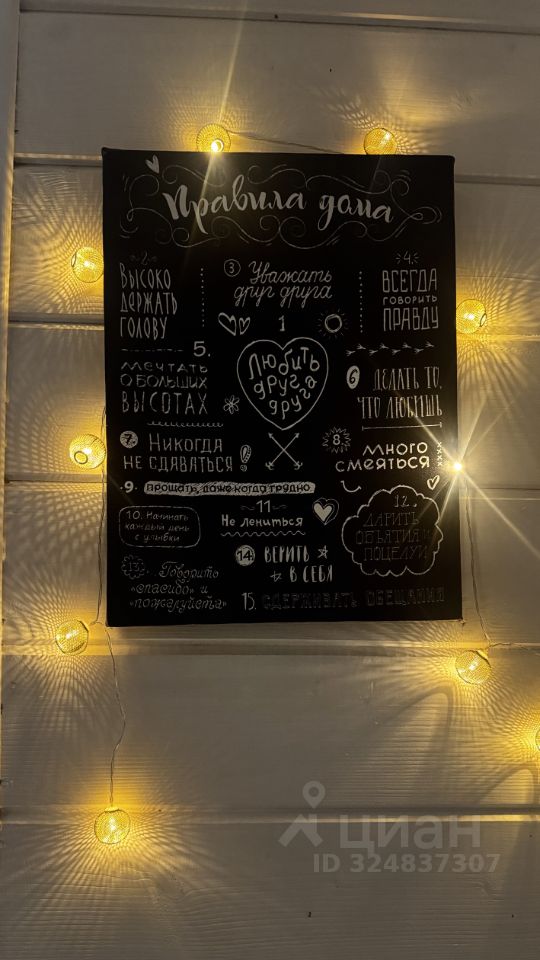 Правила дома
·2·
Высоко
держать
голову
3 Уважать
друг друга
·4·
ВСЕГДА
ГОВОРИТЬ
ПРАВДУ
1
Любить
друг
друга
5.
МЕЧТАТЬ
О БОЛЬШИХ
ВЫСОТАХ
6 ДЕЛАТЬ ТО,
ЧТО ЛЮБИШЬ
7. НИКОГДА
НЕ СДАВАТЬСЯ!
8. МНОГО
СМЕЯТЬСЯ
·9· прощать, даже когда трудно
10. Начинать
каждый день
с улыбки
11
Не лениться
12.
ДАРИТЬ
ОБЪЯТИЯ и
ПОЦЕЛУИ
13... Говорить
«спасибо» и
«пожалуйста»
14 ВЕРИТЬ
В СЕБЯ
15. СДЕРЖИВАТЬ ОБЕЩАНИЯ
циан
ID 324837307